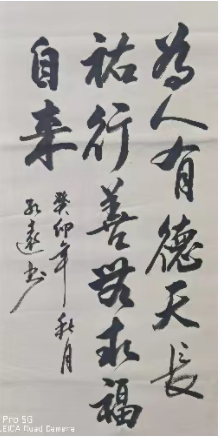 為人有德天長
祐行善無求福
自来
癸卯年秋月
永遠书
Pro 5G
LEICA Quad Camera